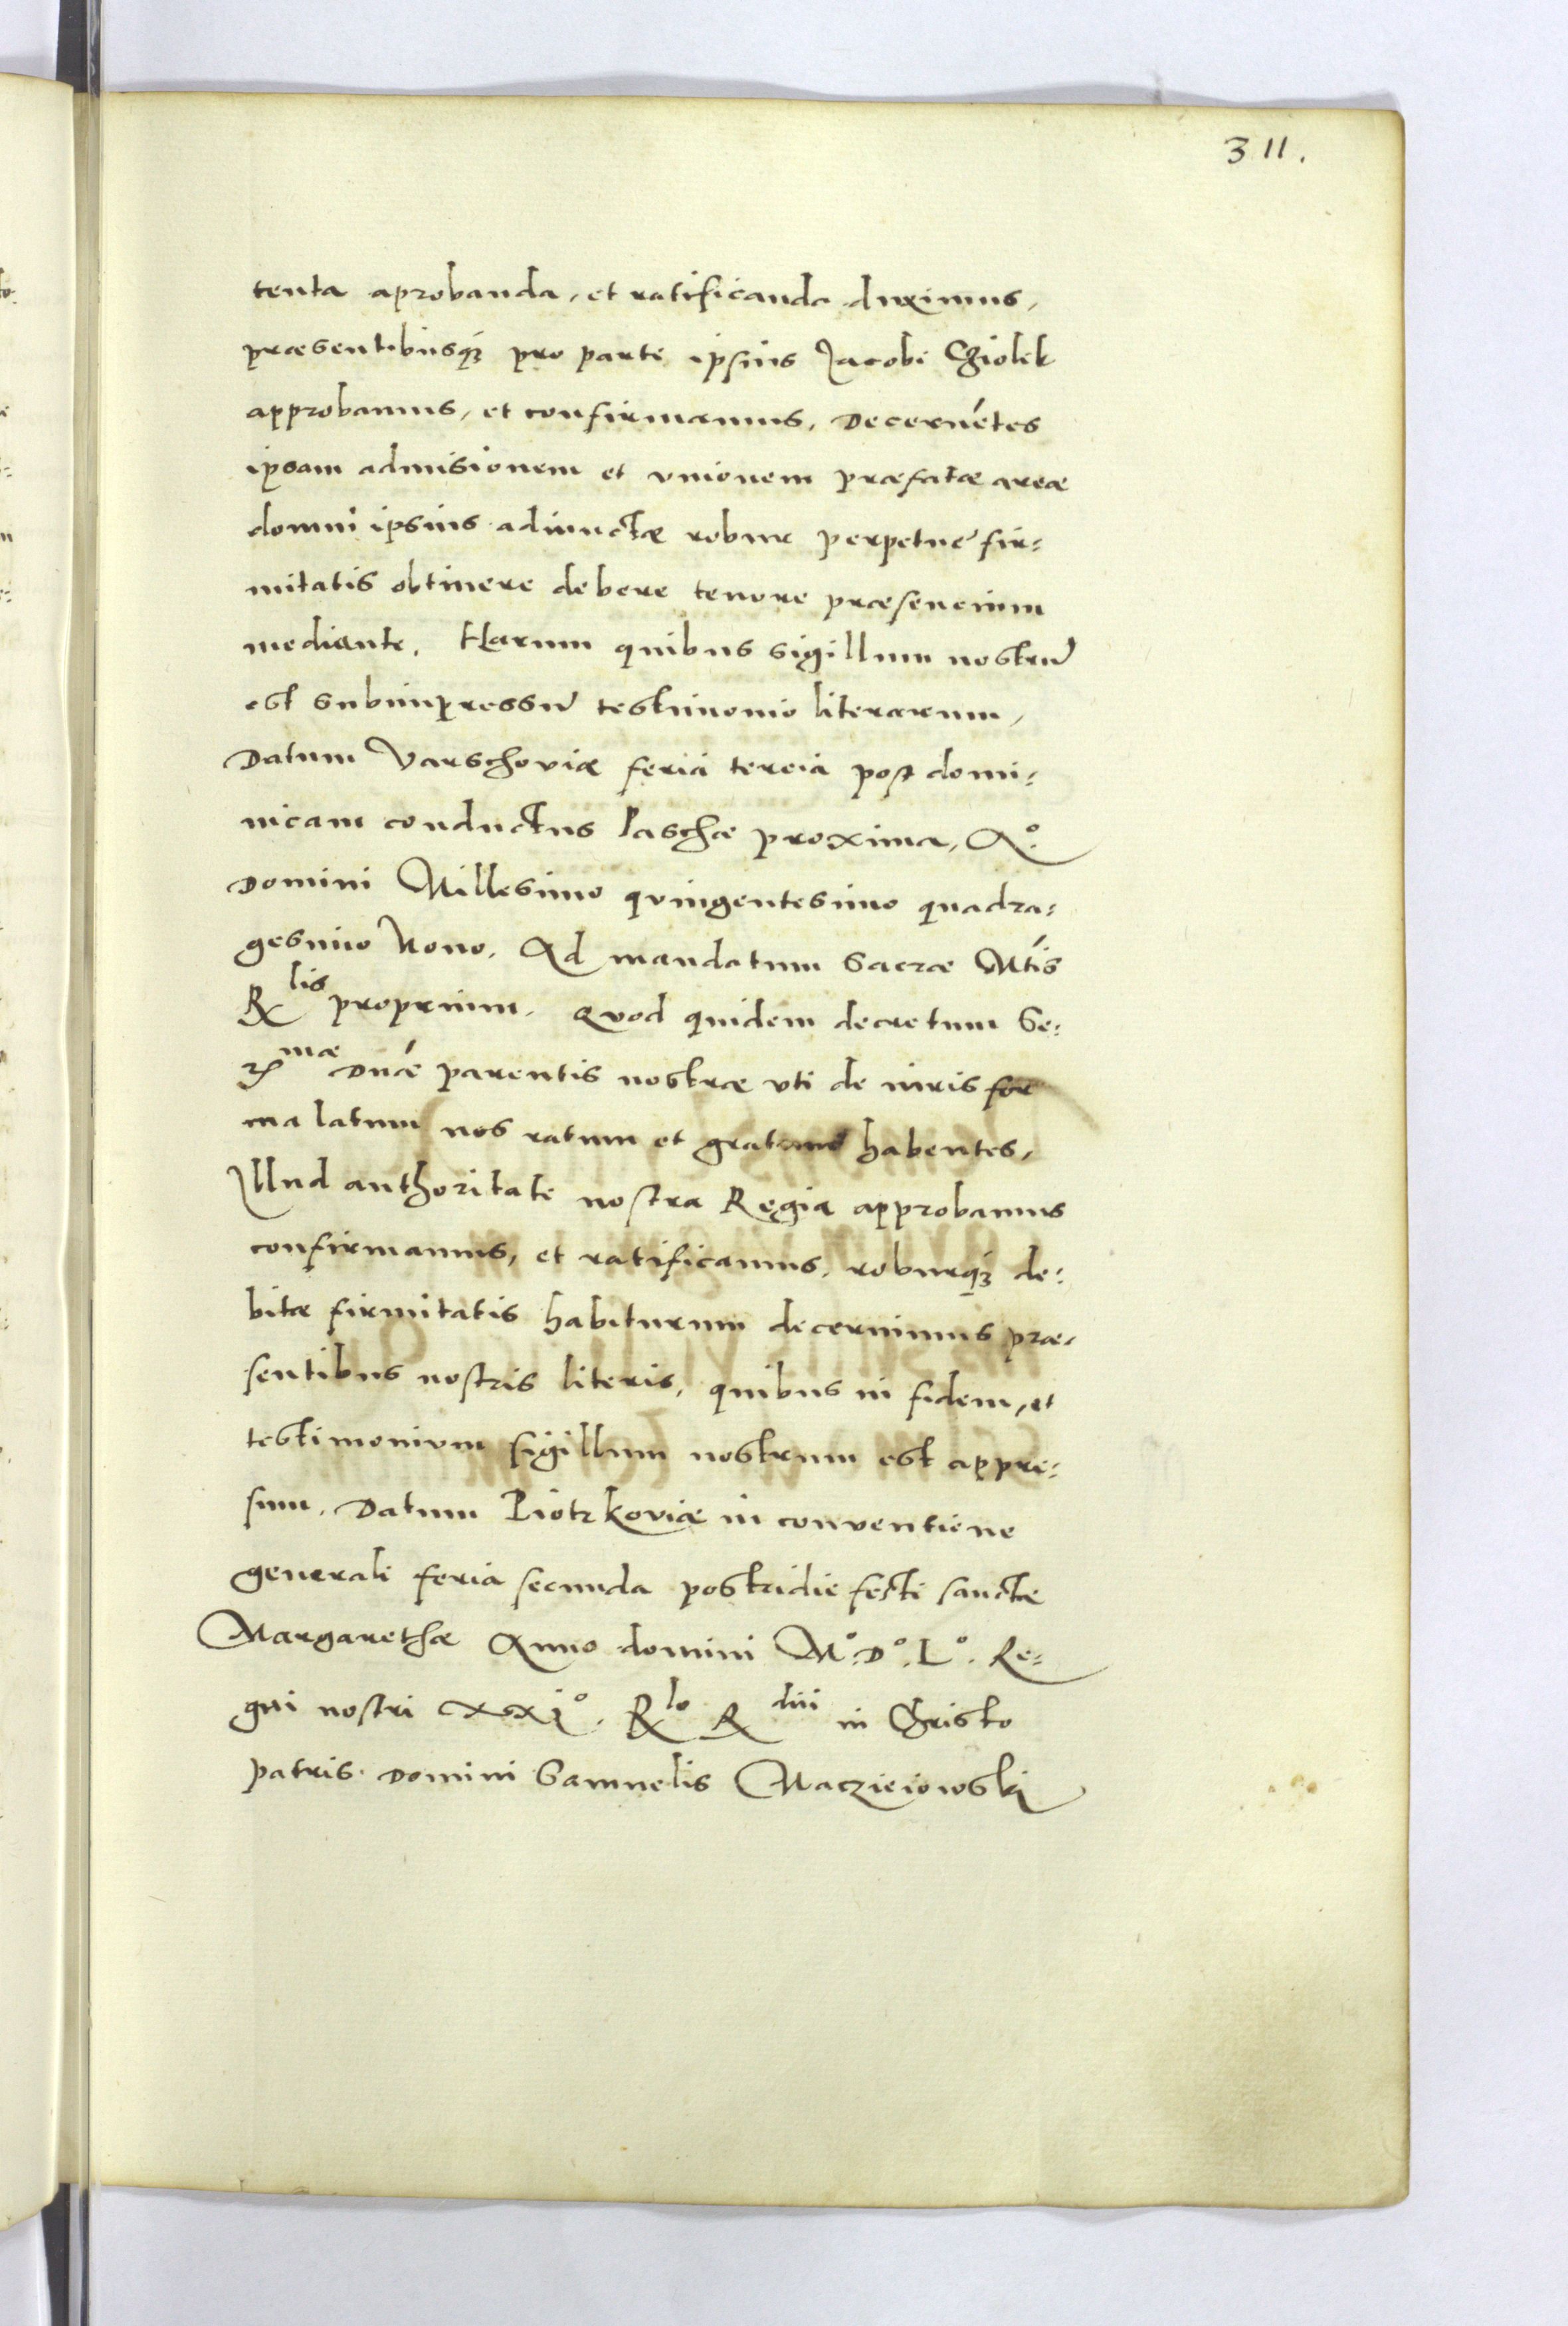 311.
tenta aprobanda, et ratificanda duximus,
præsentibusq₃ pro parte ipsius Jacobi Cziolek
approbamus, et confirmamus, Decernētes
ipsam admisionem et vnionem præfatæ areæ
domui ipsius adiunctæ robur perpetuę fir:
mitatis obtinere debere tenore præsencium
mediante. Harum quibus sigillum nostrū
est subimpressū testimonio literarum,
Datum Varschoviæ feria tercia post domi:
nicam conductus Paschæ proxima, Aº
Domini Millesimo qvingentesimo quadra:
gesimo Nono. Ad mandatum Sacræ Mtis
Rlis proprium. Qvod quidem decretum Se:
rmæ Dnæ parentis nostræ vti de iuris for
ma latum nos ratum et gratum habentes,
Illud authoritate nostra Regia approbamus
confirmamus, et ratificamus, roburq₃ de:
bitæ firmitatis habiturum decernimus præ:
sentibus nostris literis, quibus in fidem, et
testimonivm sigillum nostrum est appre:
sum. Datum Piotrkoviæ in conventione
generali feria secunda postridie festi sanctæ
Margarethæ Anno domini Mº. Dº. Lº. Re:
gni nostri xxjº. Rlo R dni in Christo
patris Domini Samuelis Maczieiowskj